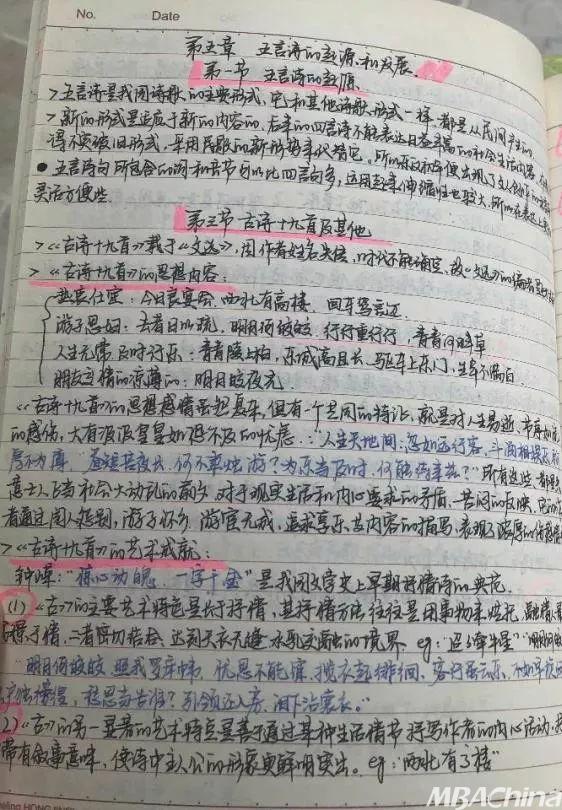 No.
Date
第五章 五言诗的起源和发展.
第一节 五言诗的起源.
>五言诗是我国诗歌的主要形式,它和其他诗歌形式一样,都是从民间产生的
>新的形式是适应于新的内容的,后来的四言诗不能表达日益丰富的社会生活内容,
得不突破旧形式,采用民歌的新形势来代替它,所以东汉初年便出现了文人创作的
●五言诗句所包含的词和音节可以比四言句多,运用起来伸缩性也较大,所以在表达上
灵活方便些.
第二节 古诗十九首及其他
>《古诗十九首》载于《文选》,因作者姓名失传,时代不能确定,故《文选》的编者
>《古诗十九首》的思想内容:
热衷仕宦:今日良宴会 西北有高楼 回车驾言迈
游子思妇:去者日以疏,明月何皎皎,行行重行行,青青河畔草
人生无常 及时行乐:青青陵上柏,东城高且长,驱车上东门,生年不满百
朋友交情的凉薄的:明月皎夜光
《古诗十九首》的思想感情虽起复杂,但有一个共同的特征,就是对人生易逝、节序如流
的感伤,大有汲汲皇皇如恐不及的忧虑.:"人生天地间,忽如远行客,斗酒相娱乐,
厚不为薄""昼短苦夜长,何不秉烛游?为乐当及时,何能待来兹?"所有这些,都是
意士人阶当社会大动乱的前夕 对于现实生活和内心要求的矛盾、苦闷的反映,它的
者通过闺人怨别、游子怀乡、游宦无成、追求享乐等内容的描写,表现了浓厚的伤感情
>《古诗十九首》的艺术成就:
钟嵘:"惊心动魄,一字千金"是我国文学史上早期抒情诗的典范.
(1)《古》的主要艺术特色是长于抒情,其抒情方法往往是用事物来烘托,融情入景
寓景于情,二者密切结合,达到天衣无缝、水乳交融的境界. eg:"迢迢牵牛星""明月何皎
"明月何皎皎,照我罗床帏,忧愁不能寐,揽衣起徘徊,客行虽云乐,不如早旋
出户独彷徨,愁思当告谁?引领还入房,泪下沾裳衣."
(2)《古》的另一显著的艺术特点是善于通过某种生活情节抒写作者的内心活动,
带有叙事意味,使诗中主人公的形象更鲜明突出. eg:"西北有高楼"
MBAChina